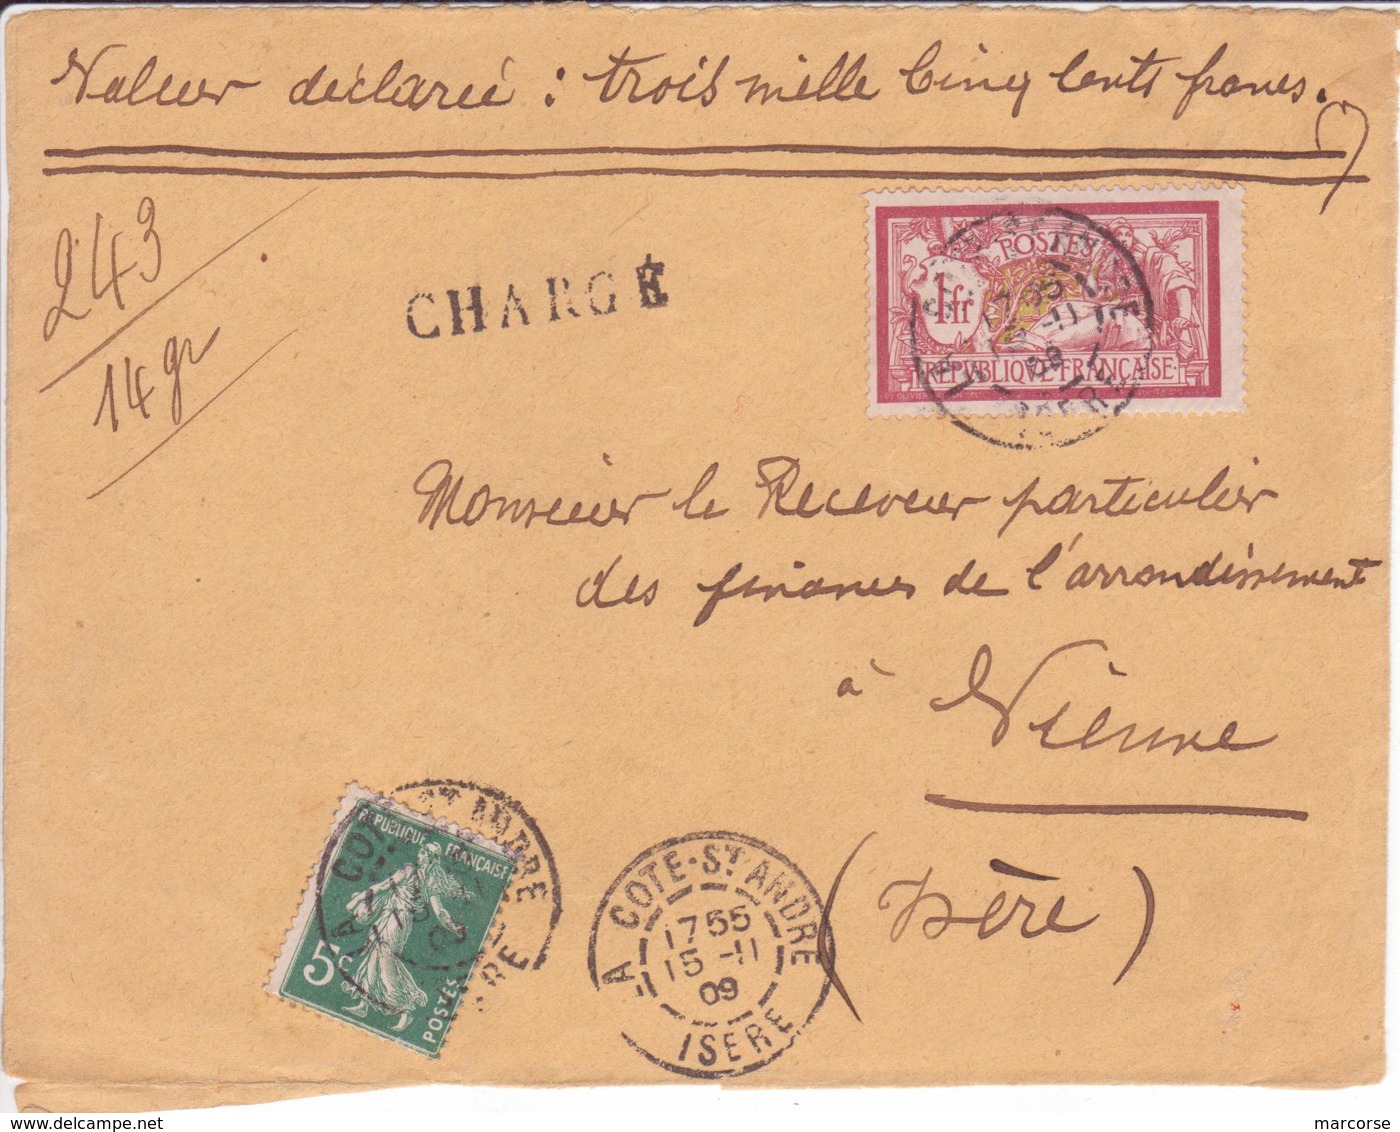 Valeur déclarée : trois mille cinq cents francs.
243
14 gr
CHARGÉ
POSTES
1 fr
REPUBLIQUE FRANÇAISE
Monsieur le Receveur particulier
des finances de l'arrondissement
à Vienne
(Isère)
REPUBLIQUE FRANÇAISE
5c
POSTES
LA COTE-ST ANDRE
17 55
15 -11
09
ISERE
www.delcampe.net
marcorse